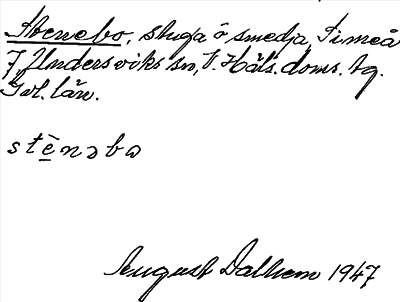 Stenebo, stuga ö smedja, Simeå
7, Undersviks sn, V. Häls. doms. tg.
Gvl. län.
stènəbω
August Dalhem 1947